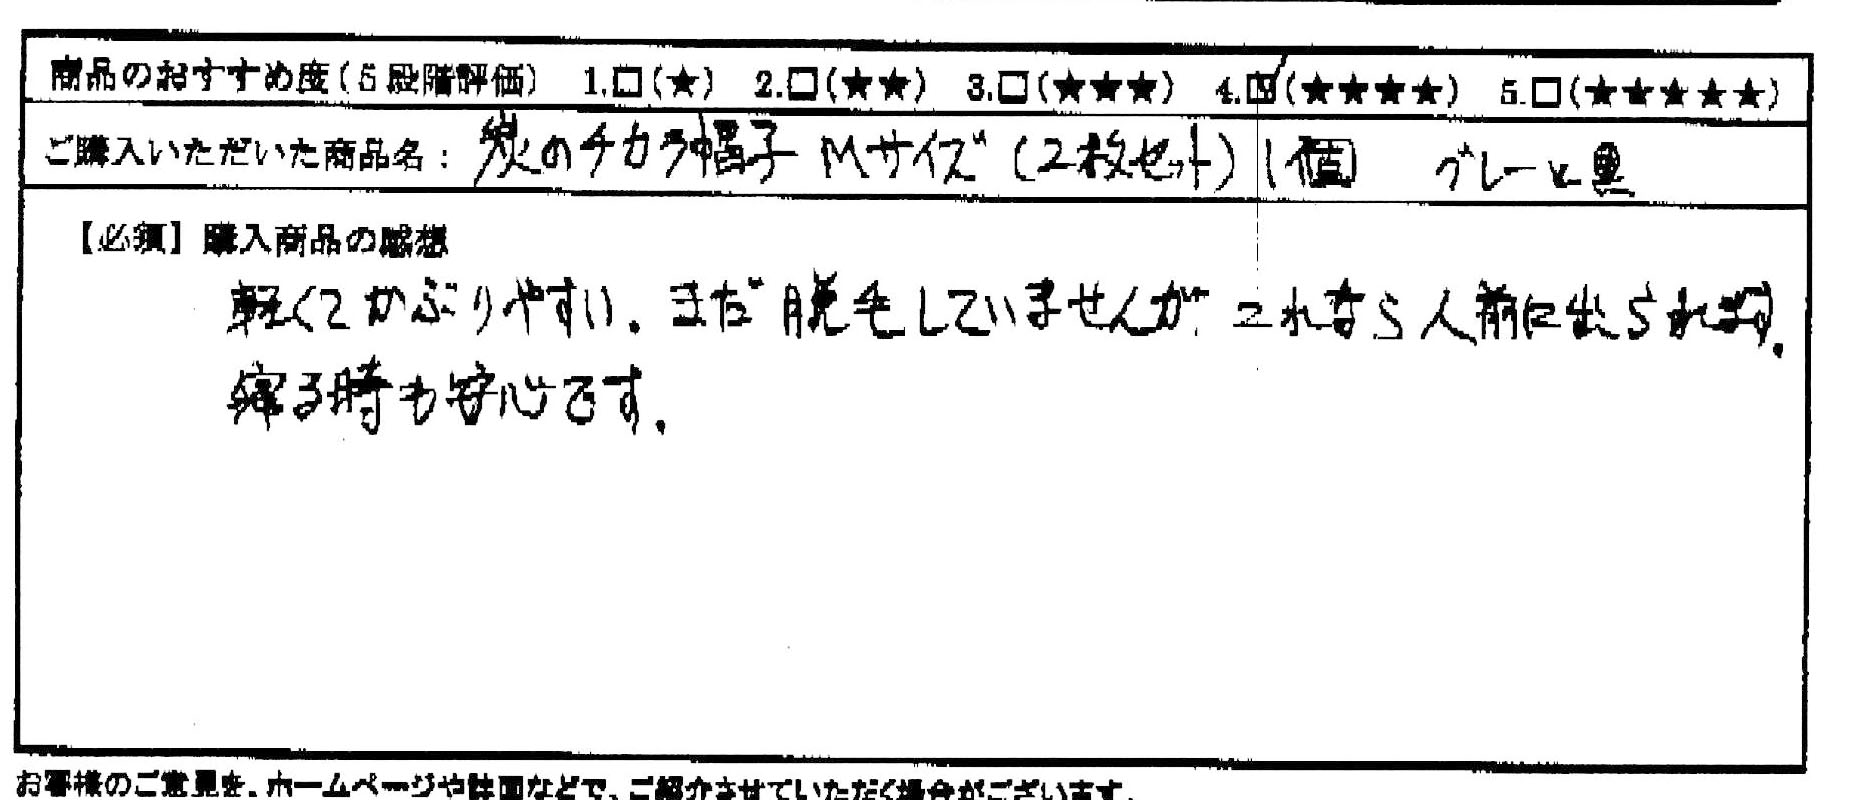 商品のおすすめ度(5段階評価) 1.□(★) 2.□(★★) 3.□(★★★) 4.☑(★★★★) 5.□(★★★★★)
ご購入いただいた商品名: 炭のチカラ帽子 Mサイズ(2枚セット) 1個 グレーと黒
【必須】購入商品の感想
軽くてかぶりやすい。まだ脱毛していませんが これなら人前に出られます。
寝る時も安心です。
お客様のご意見を、ホームページや誌面などで、ご紹介させていただく場合がございます。